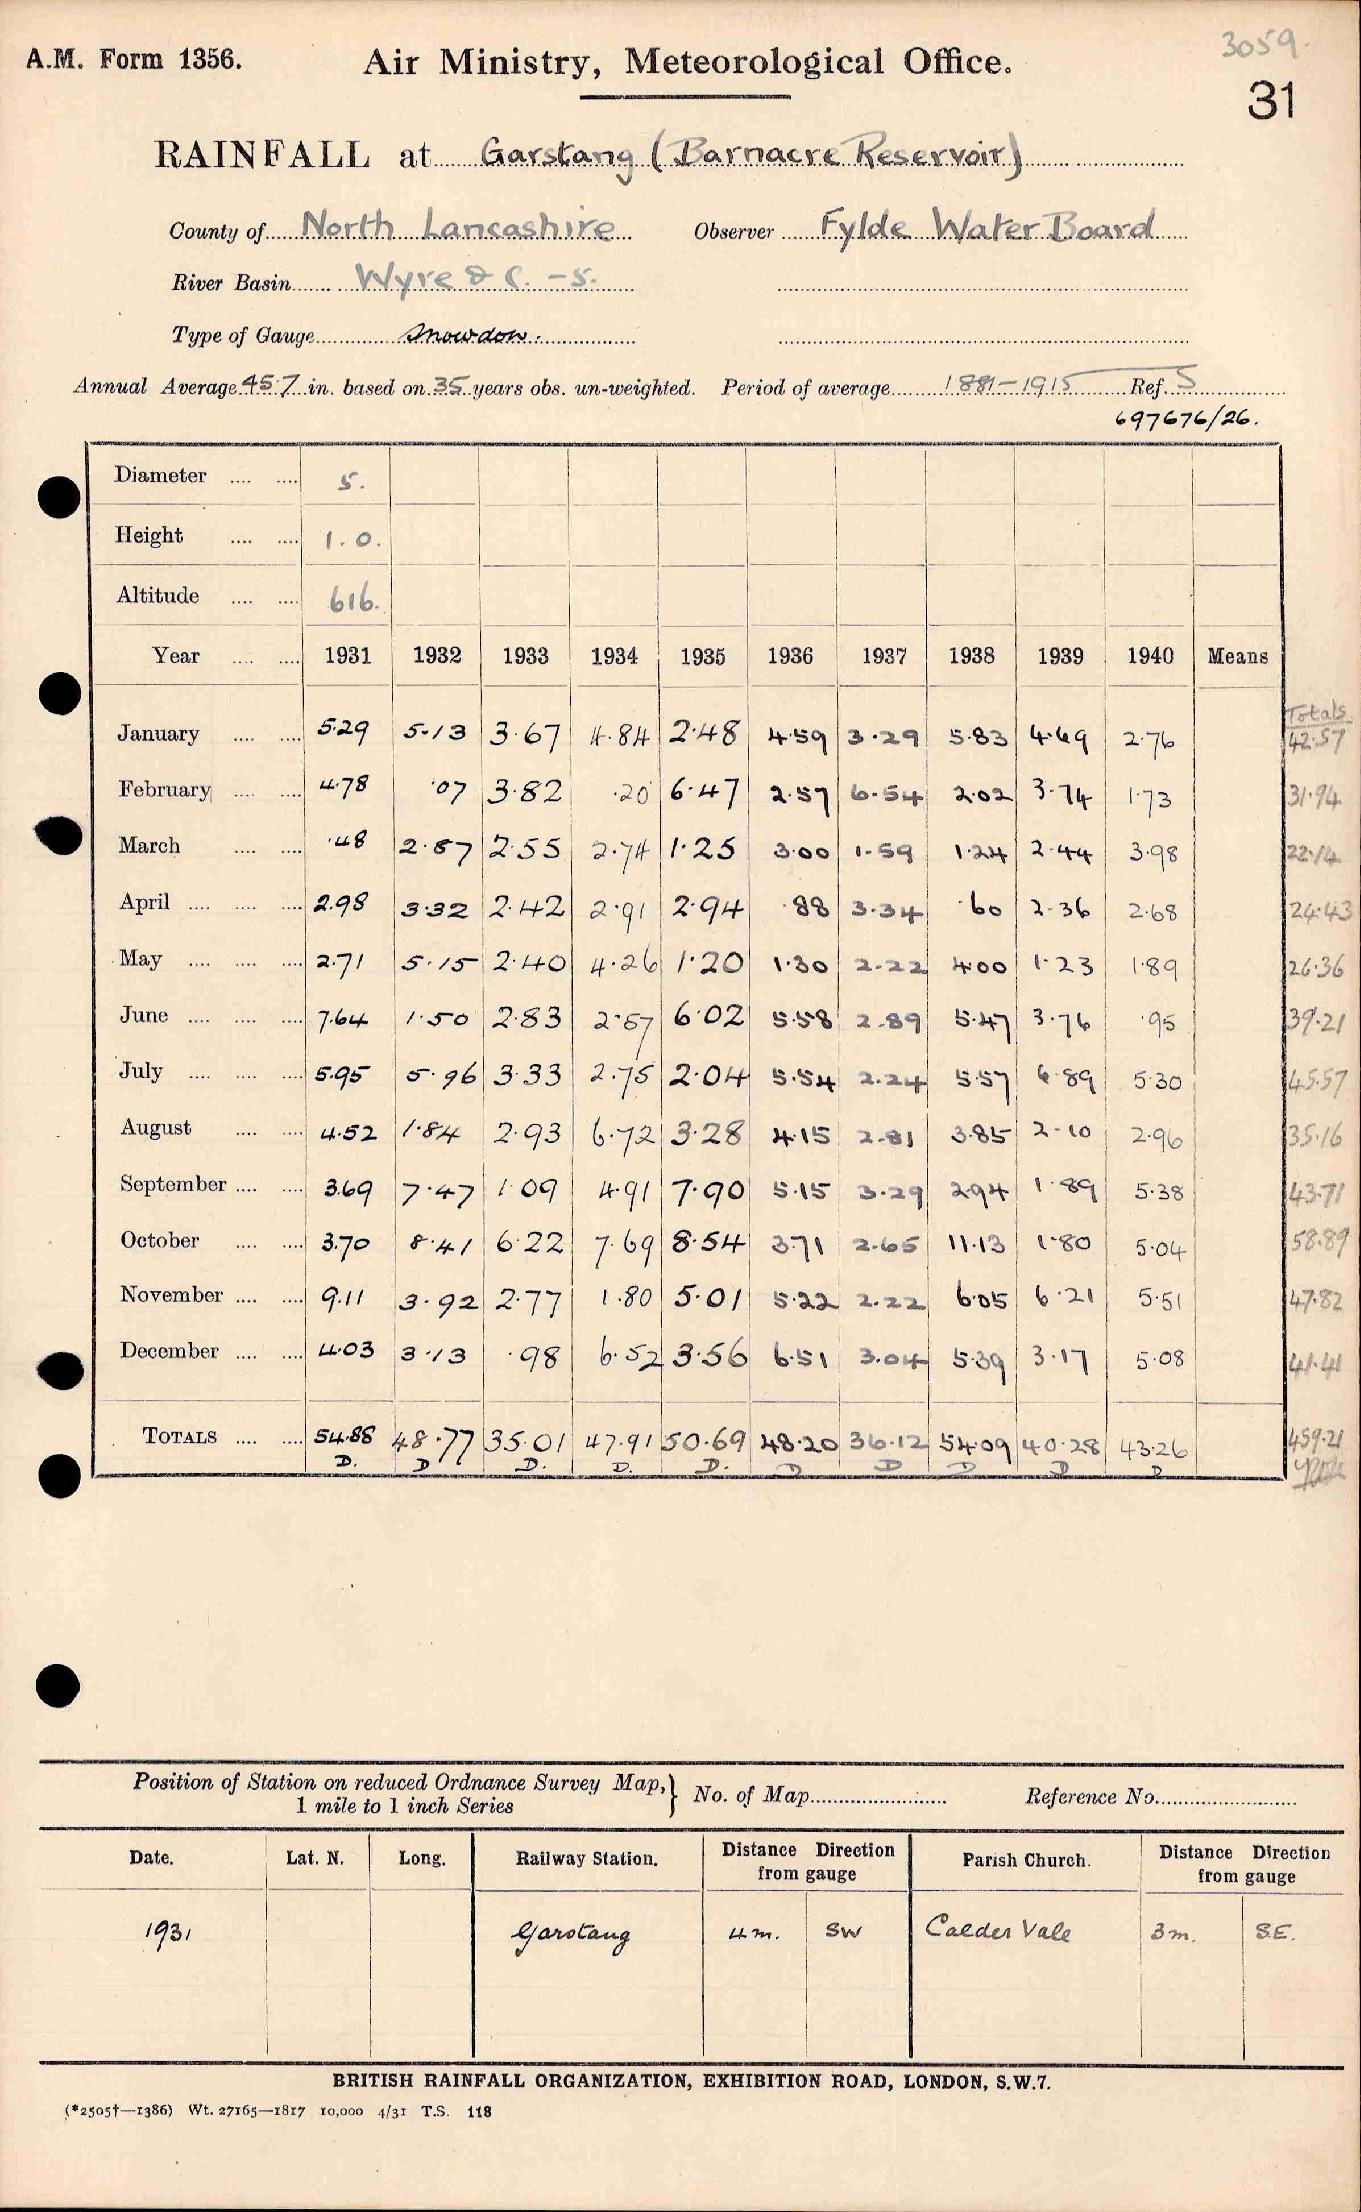 3059.
A.M. Form 1356. Air Ministry, Meteorological Office.
31
RAINFALL at Garstang (Barnacre Reservoir)
County of North Lancashire Observer Fylde Water Board
River Basin Wyre & C. - 5.
Type of Gauge Snowdon.
Annual Average 45.7 in. based on 35 years obs. un-weighted. Period of average 1881-1915 Ref. S
697676/26.
Diameter 5.
Height 1.0.
Altitude 616.
Year 1931 1932 1933 1934 1935 1936 1937 1938 1939 1940 Means
Totals
January 5.29 5.13 3.67 4.84 2.48 4.59 3.29 5.83 4.69 2.76 42.57
February 4.78 .07 3.82 .20 6.47 2.57 6.54 2.02 3.74 1.73 31.94
March .48 2.87 2.55 2.74 1.25 3.00 1.59 1.24 2.44 3.98 22.14
April 2.98 3.32 2.42 2.91 2.94 .88 3.34 .60 2.36 2.68 24.43
May 2.71 5.15 2.40 4.26 1.20 1.30 2.22 4.00 1.23 1.89 26.36
June 7.64 1.50 2.83 2.57 6.02 5.58 2.89 5.47 3.76 .95 39.21
July 5.95 5.96 3.33 2.75 2.04 5.54 2.24 5.57 6.89 5.30 45.57
August 4.52 1.84 2.93 6.72 3.28 4.15 2.81 3.85 2.10 2.96 35.16
September 3.69 7.47 1.09 4.91 7.90 5.15 3.29 2.94 1.89 5.38 43.71
October 3.70 8.41 6.22 7.69 8.54 3.71 2.65 11.13 1.80 5.04 58.89
November 9.11 3.92 2.77 1.80 5.01 5.22 2.22 6.05 6.21 5.51 47.82
December 4.03 3.13 .98 6.52 3.56 6.51 3.04 5.39 3.17 5.08 41.41
TOTALS 54.88 48.77 35.01 47.91 50.69 48.20 36.12 54.09 40.28 43.26 459.21
D. D D. D. D. D D D D D
Position of Station on reduced Ordnance Survey Map, } No. of Map Reference No.
1 mile to 1 inch Series
Date. Lat. N. Long. Railway Station. Distance Direction from gauge Parish Church. Distance Direction from gauge
1931 Garstang 4 m. SW Calder Vale 3 m. S.E.
BRITISH RAINFALL ORGANIZATION, EXHIBITION ROAD, LONDON, S.W.7.
(*2505†—1386) Wt. 27165—1817 10,000 4/31 T.S. 118